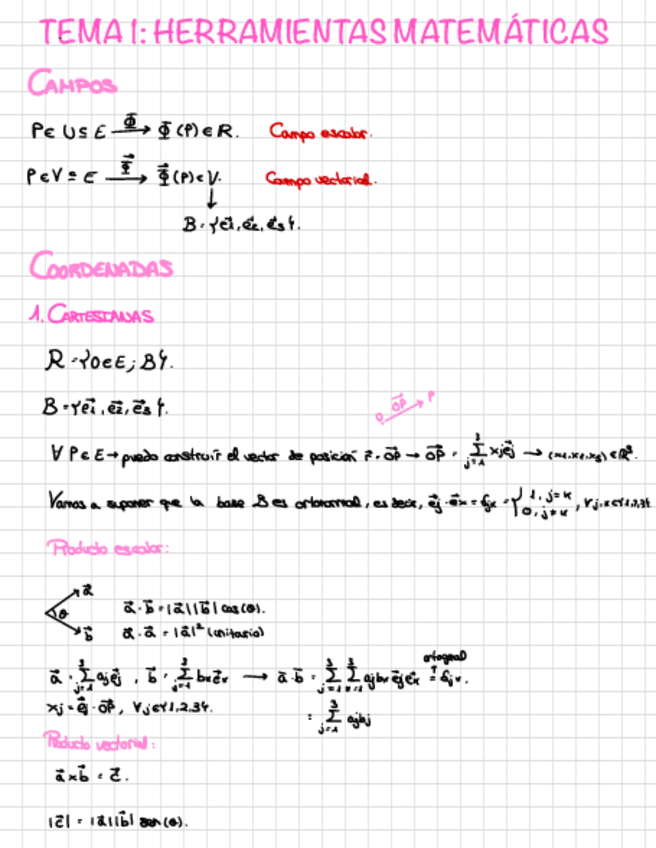 TEMA 1: HERRAMIENTAS MATEMÁTICAS
CAMPOS
P ∈ U ⊆ E —Φ→ Φ(P) ∈ R. Campo escalar.
P ∈ V ⊆ E —Φ⃗→ Φ⃗(P) ∈ V. Campo vectorial.
↓
B = {e⃗1, e⃗2, e⃗3}.
COORDENADAS
1. CARTESIANAS
R = {O ∈ E; B}.
B = {e⃗1, e⃗2, e⃗3}.
O OP⃗ P
∀ P ∈ E → puedo construir el vector de posición r⃗ = OP⃗ → OP⃗ = ∑_{j=1}^{3} xj e⃗j → (x1, x2, x3) ∈ R³.
Vamos a suponer que la base B es ortonormal, es decir, e⃗j · e⃗k = δjk = { 1, j=k
0, j≠k , ∀ j, k ∈ {1,2,3}
Producto escalar:
a⃗
θ a⃗ · b⃗ = |a⃗||b⃗| cos(θ).
b⃗ a⃗ · a⃗ = |a⃗|² (unitario)
ortogonal
a⃗ = ∑_{j=1}^{3} aj e⃗j , b⃗ = ∑_{k=1}^{3} bk e⃗k → a⃗ · b⃗ = ∑_{j=1}^{3} ∑_{k=1}^{3} aj bk e⃗j e⃗k = δjk.
xj = e⃗j · OP⃗, ∀ j ∈ {1,2,3}.
= ∑_{j=1}^{3} aj bj
Producto vectorial:
a⃗ × b⃗ = c⃗.
|c⃗| = |a⃗||b⃗| sen(θ).